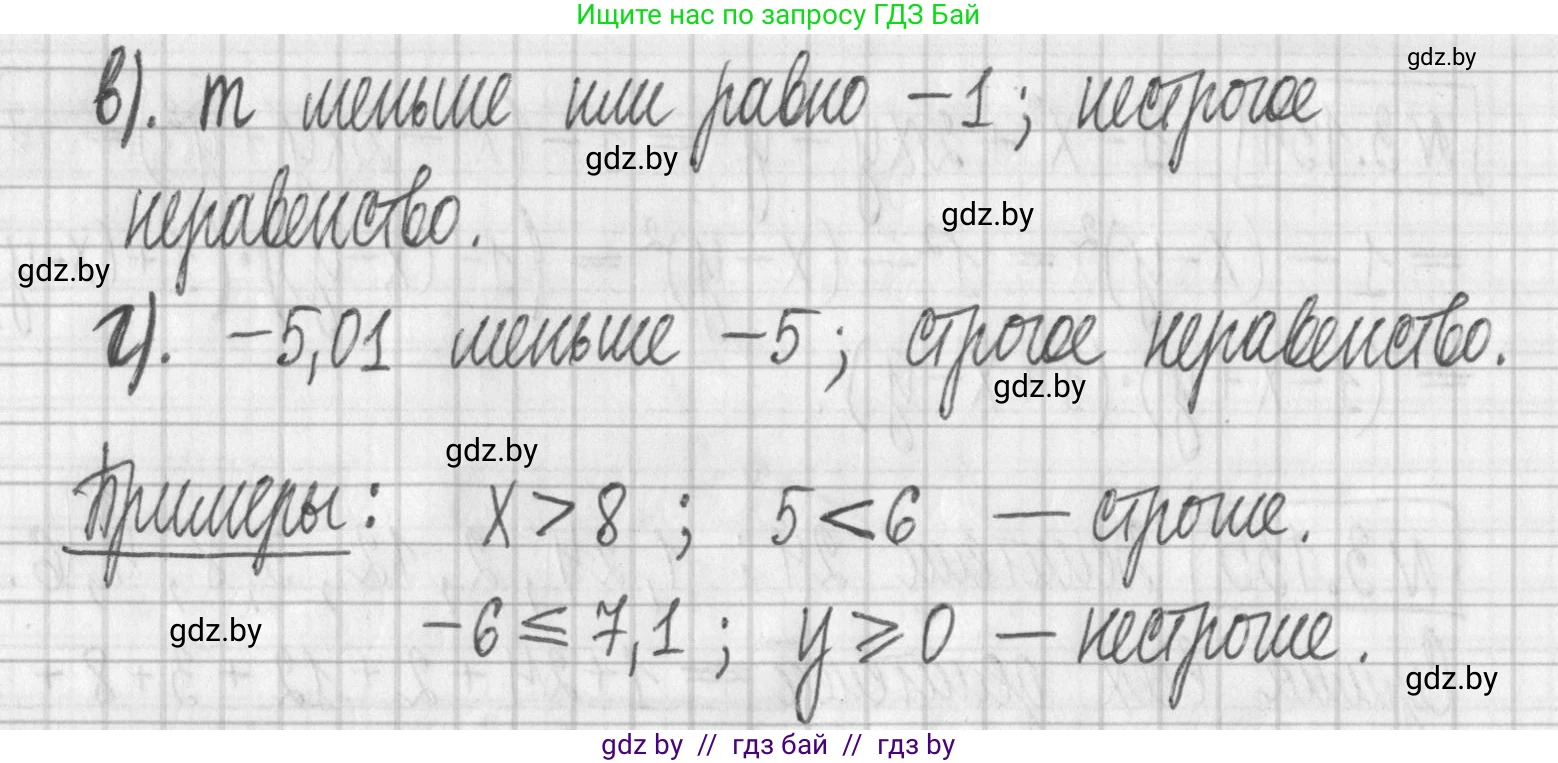 Ищите нас по запросу ГДЗ Бай
gdz.by
в). m меньше или равно −1; нестрогое
gdz.by
неравенство.
gdz.by
gdz.by
г). −5,01 меньше −5; строгое неравенство.
gdz.by
gdz.by
Примеры: x > 8 ; 5 < 6 — строгие.
gdz.by
−6 ≤ 7,1 ; y ⩾ 0 — нестрогие.
gdz.by
gdz by // гдз бай // гдз by